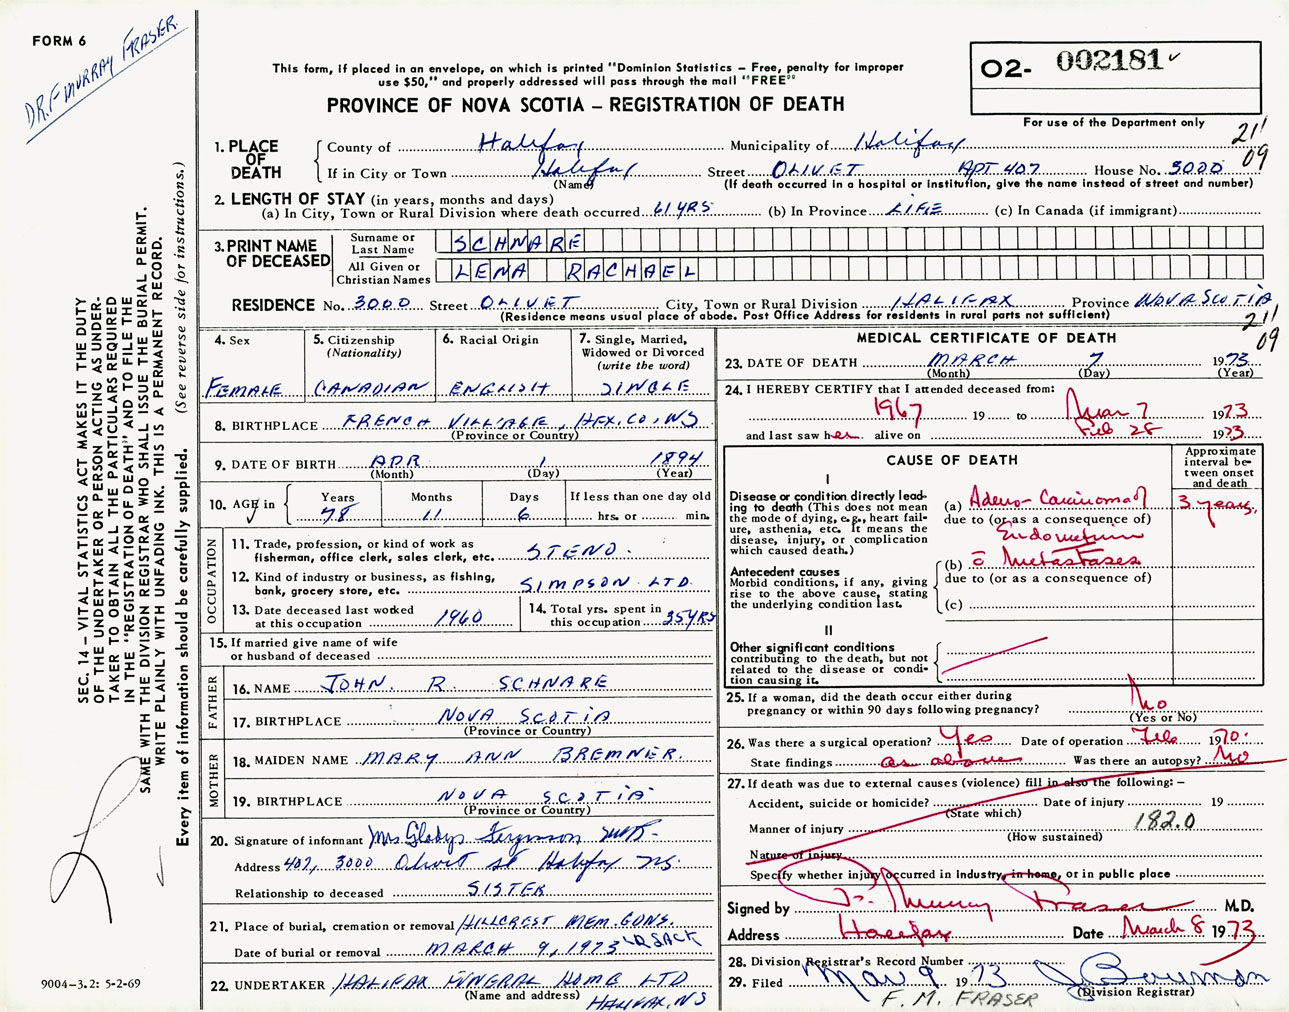 FORM 6
DR. F MURRAY FRASER
This form, if placed in an envelope, on which is printed "Dominion Statistics – Free, penalty for improper
use $50," and properly addressed will pass through the mail "FREE"
PROVINCE OF NOVA SCOTIA – REGISTRATION OF DEATH
02- 002181
For use of the Department only
211
09
1. PLACE OF DEATH
County of Halifax Municipality of Halifax
If in City or Town Halifax Street OLIVET APT 407 House No. 3000
(Name) (If death occurred in a hospital or institution, give the name instead of street and number)
2. LENGTH OF STAY (in years, months and days)
(a) In City, Town or Rural Division where death occurred 61 YRS (b) In Province LIFE (c) In Canada (if immigrant)
3. PRINT NAME OF DECEASED
Surname or Last Name SCHNARE
All Given or Christian Names LENA RACHAEL
RESIDENCE No. 3000 Street OLIVET City, Town or Rural Division HALIFAX Province NOVA SCOTIA
(Residence means usual place of abode. Post Office Address for residents in rural parts not sufficient)
211
09
4. Sex FEMALE
5. Citizenship (Nationality) CANADIAN
6. Racial Origin ENGLISH
7. Single, Married, Widowed or Divorced (write the word) SINGLE
8. BIRTHPLACE FRENCH VILLAGE, HFX. CO, NS
(Province or Country)
9. DATE OF BIRTH APR 1 1894
(Month) (Day) (Year)
10. AGE in Years 78 Months 11 Days 6 If less than one day old hrs. or min.
OCCUPATION
11. Trade, profession, or kind of work as
fisherman, office clerk, sales clerk, etc. STENO.
12. Kind of industry or business, as fishing,
bank, grocery store, etc. SIMPSON LTD.
13. Date deceased last worked
at this occupation 1960
14. Total yrs. spent in
this occupation 35 YRS
15. If married give name of wife
or husband of deceased
FATHER
16. NAME JOHN. R. SCHNARE
17. BIRTHPLACE NOVA SCOTIA
(Province or Country)
MOTHER
18. MAIDEN NAME MARY ANN BREMNER.
19. BIRTHPLACE NOVA SCOTIA
(Province or Country)
20. Signature of informant Mrs. Gladys Ferguson
Address 407, 3000 Olivet St Halifax NS.
Relationship to deceased SISTER
21. Place of burial, cremation or removal HILLCREST MEM. GDNS.
Date of burial or removal MARCH 9, 1973 SACK
22. UNDERTAKER HALIFAX FUNERAL HOME LTD
(Name and address) HALIFAX, NS
MEDICAL CERTIFICATE OF DEATH
23. DATE OF DEATH MARCH 7 1973
(Month) (Day) (Year)
24. I HEREBY CERTIFY that I attended deceased from:
1967 19 to Mar 7 1973
and last saw her alive on Feb 28 1973
CAUSE OF DEATH
Approximate interval between onset and death
I
Disease or condition directly leading to death (This does not
mean the mode of dying, e.g., heart failure, asthenia, etc. It means the
disease, injury, or complication
which caused death.)
(a) Adeno-Carcinoma of 3 years.
due to (or as a consequence of)
Endometrium
Antecedent causes
Morbid conditions, if any, giving
rise to the above cause, stating
the underlying condition last.
(b) c̄ Metastases
due to (or as a consequence of)
(c)
II
Other significant conditions
contributing to the death, but not
related to the disease or condition causing it.
25. If a woman, did the death occur either during
pregnancy or within 90 days following pregnancy? No
(Yes or No)
26. Was there a surgical operation? Yes Date of operation Feb 1970.
State findings as above Was there an autopsy? No
27. If death was due to external causes (violence) fill in also the following: –
Accident, suicide or homicide? Date of injury 19
(State which)
Manner of injury 182.0
(How sustained)
Nature of injury
Specify whether injury occurred in industry, in home, or in public place
Signed by F. Murray Fraser M.D.
Address Halifax Date March 8 1973
28. Division Registrar's Record Number
29. Filed Mar 9 1973
(Division Registrar)
F. M. FRASER
SEC. 14 – VITAL STATISTICS ACT MAKES IT THE DUTY
OF THE UNDERTAKER OR PERSON ACTING AS UNDER-
TAKER TO OBTAIN ALL THE PARTICULARS REQUIRED
IN THE "REGISTRATION OF DEATH" AND TO FILE THE
SAME WITH THE DIVISION REGISTRAR WHO SHALL ISSUE THE BURIAL PERMIT.
WRITE PLAINLY WITH UNFADING INK. THIS IS A PERMANENT RECORD.
Every item of information should be carefully supplied. (See reverse side for instructions.)
9004-3.2: 5-2-69